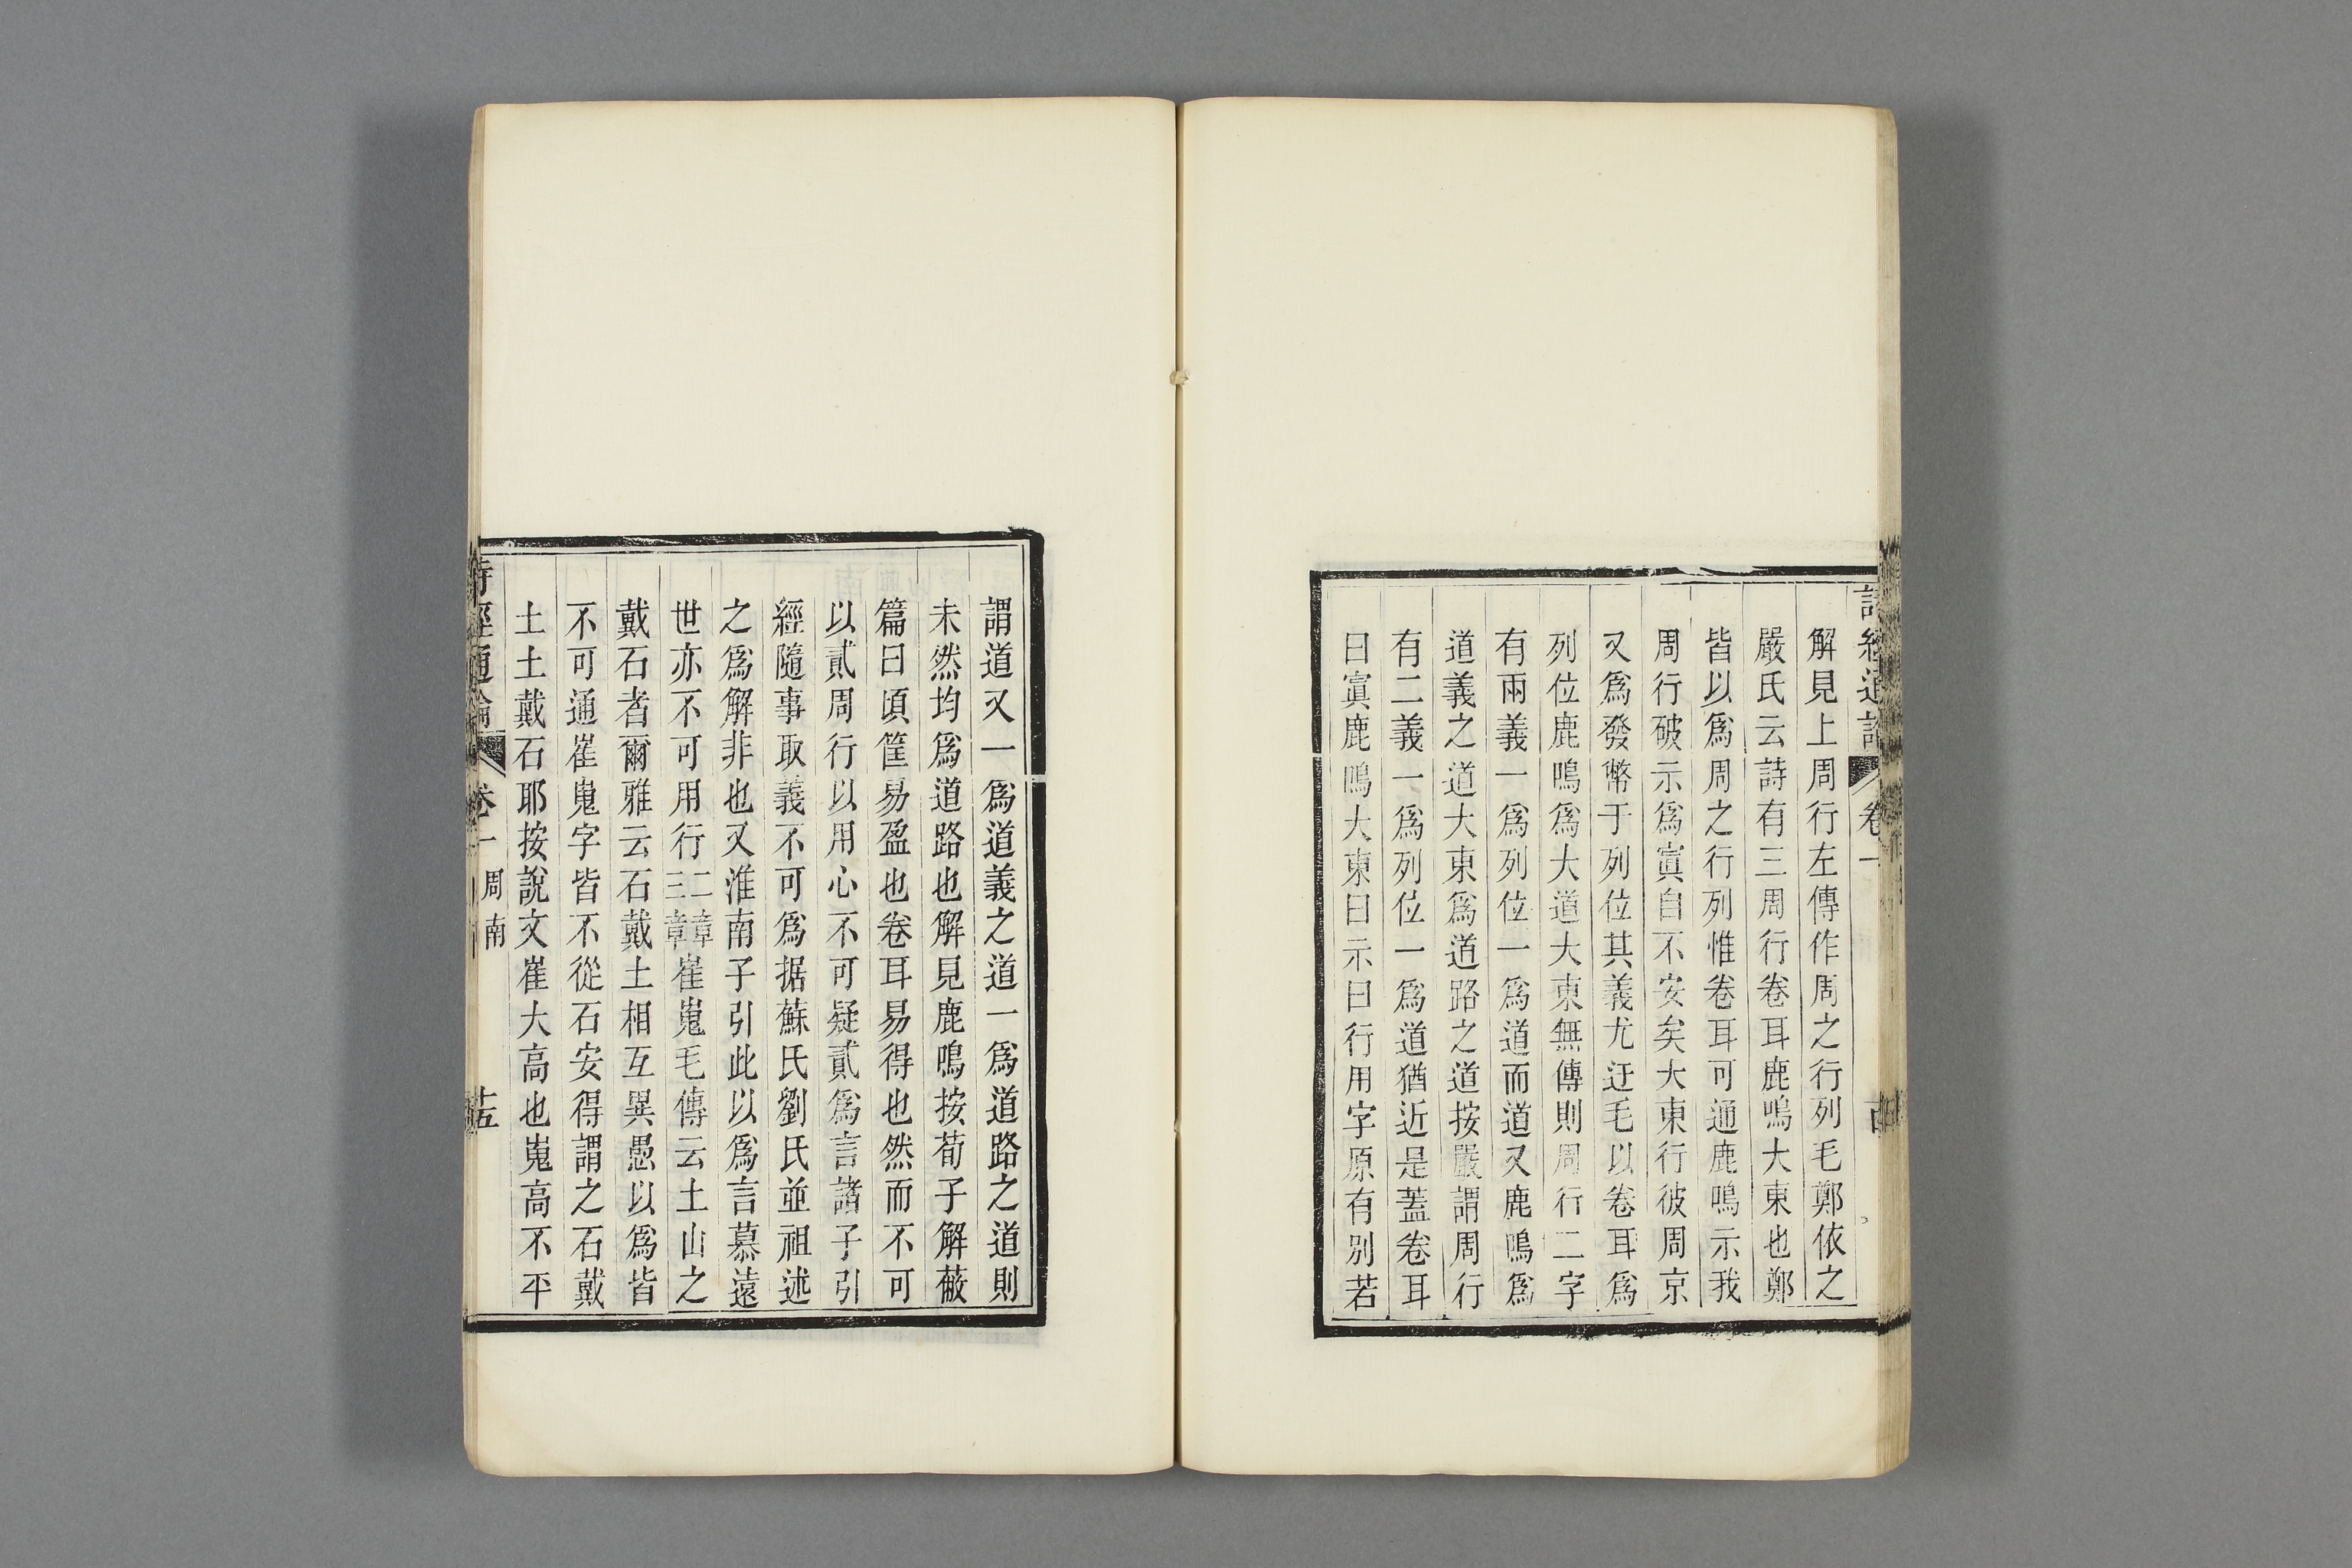 詩經通論 卷一
解見上周行左傳作周之行列毛鄭依之
嚴氏云詩有三周行卷耳鹿鳴大東也鄭
皆以爲周之行列惟卷耳可通鹿鳴示我
周行破示爲寘自不安矣大東行彼周京
又爲發幣于列位其義尤迂毛以卷耳爲
列位鹿鳴爲大道大東無傳則周行二字
有兩義一爲列位一爲道而道又鹿鳴爲
道義之道大東爲道路之道按嚴謂周行
有二義一爲列位一爲道猶近是蓋卷耳
曰寘鹿鳴大東曰示曰行用字原有別若
謂道又一爲道義之道一爲道路之道則
未然均爲道路也解見鹿鳴按荀子解蔽
篇曰頃筐易盈也卷耳易得也然而不可
以貳周行以用心不可疑貳爲言諸子引
經隨事取義不可爲据蘇氏劉氏並祖述
之爲解非也又淮南子引此以爲言慕遠
世亦不可用行二章三章崔嵬毛傳云土山之
戴石者爾雅云石戴土相互異愚以爲皆
不可通崔嵬字皆不從石安得謂之石戴
土土戴石耶按說文崔大高也嵬高不平
詩經通論 卷一 周南 十五